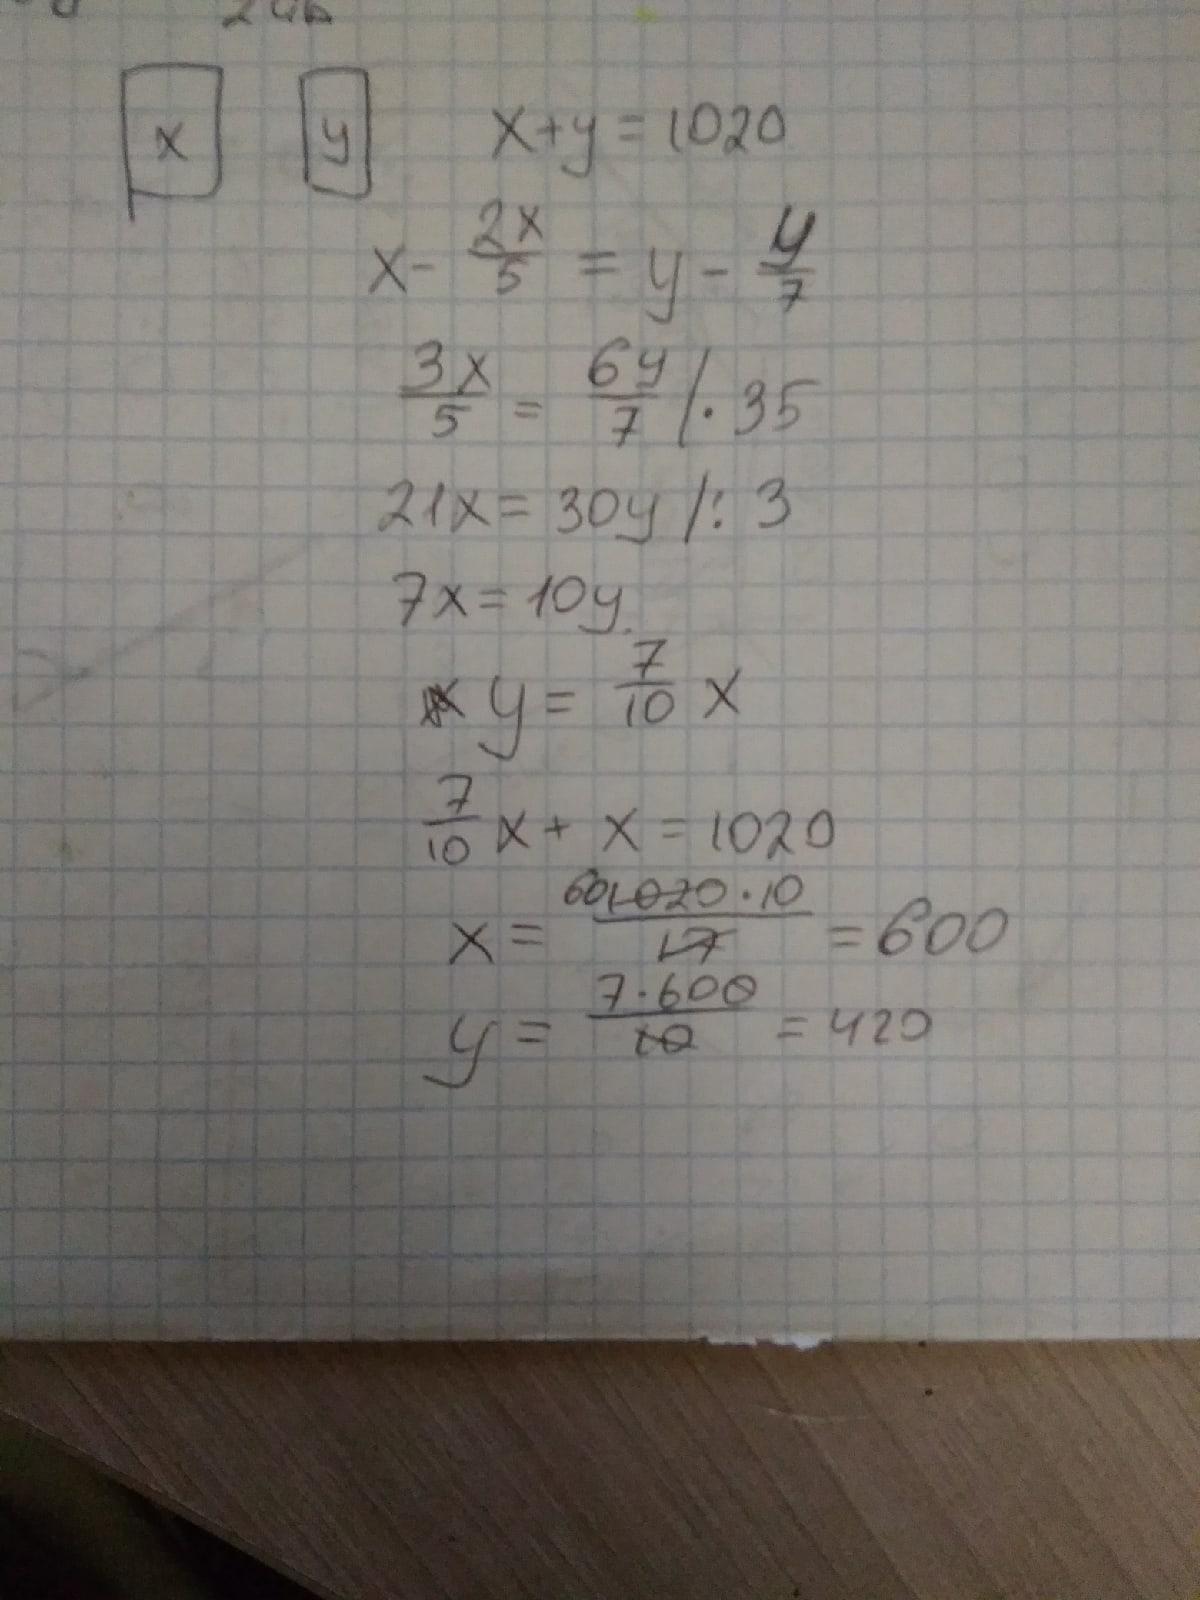 x y x+y=1020
x - 2x/5 = y - y/7
3x/5 = 6y/7 /· 35
21x = 30y /: 3
7x = 10y
y = 7/10 x
7/10 x + x = 1020
x = 60 1020·10/17 = 600
y = 7·600/10 = 420